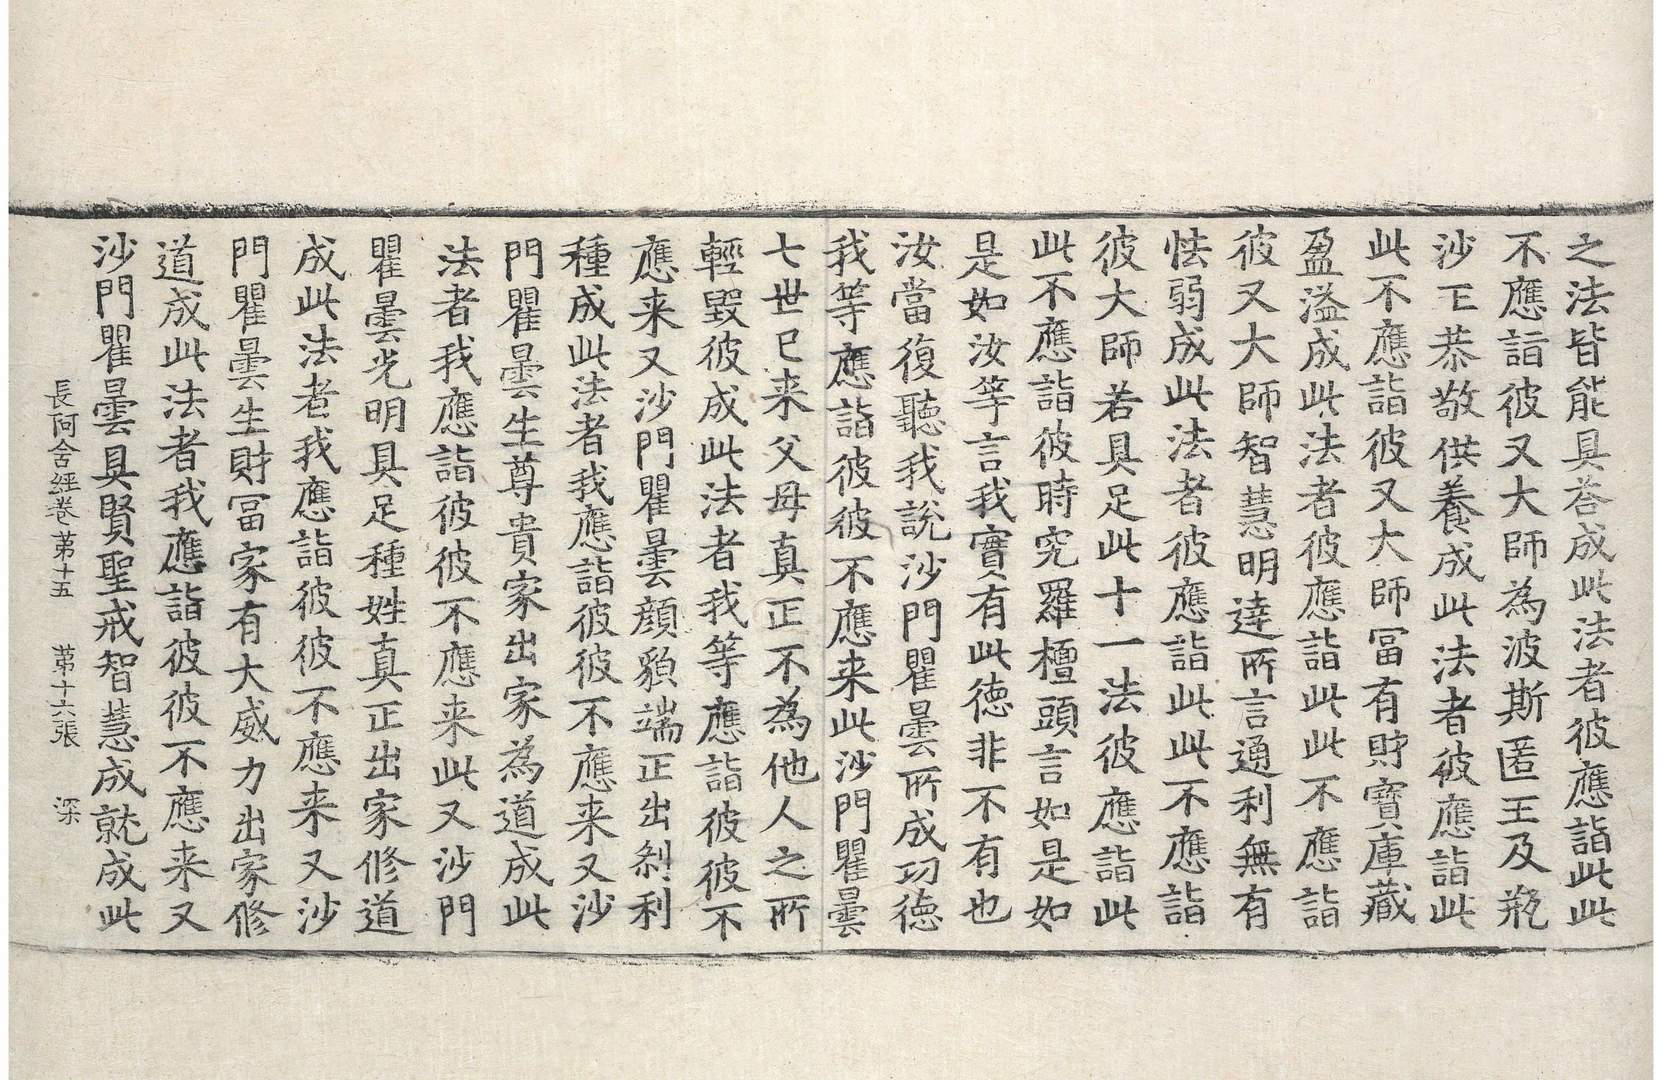 之法皆能具荅成此法者彼應詣此此
不應詣彼又大師為波斯匿王及瓶
沙王恭敬供養成此法者彼應詣此
此不應詣彼又大師冨有財寶庫藏
盈溢成此法者彼應詣此此不應詣
彼又大師智慧明達所言通利無有
怯弱成此法者彼應詣此此不應詣
彼大師若具足此十一法彼應詣此
此不應詣彼時究羅檀頭言如是如
是如汝等言我實有此徳非不有也
汝當復聽我說沙門瞿曇所成功徳
我等應詣彼彼不應来此沙門瞿曇
七世已来父母真正不為他人之所
輕毀彼成此法者我等應詣彼彼不
應来又沙門瞿曇顔貌端正出刹利
種成此法者我應詣彼彼不應来又沙
門瞿曇生尊貴家出家為道成此
法者我應詣彼彼不應来此又沙門
瞿曇光明具足種姓真正出家修道
成此法者我應詣彼彼不應来又沙
門瞿曇生財冨家有大威力出家修
道成此法者我應詣彼彼不應来又
沙門瞿曇具賢聖戒智慧成就成此
長阿含經卷第十五　第十六張　深